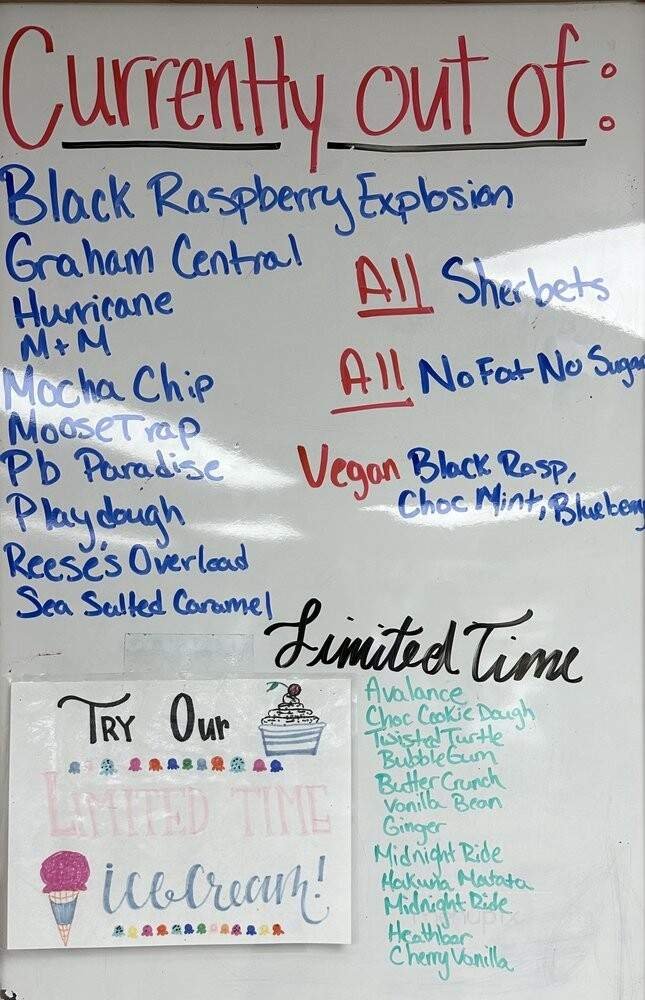 Currently out of:
Black Raspberry Explosion
Graham Central
Hurricane
M+M
Mocha Chip
MooseTrap
Pb Paradise
Playdough
Reese's Overload
Sea Salted Caramel
All Sherbets
All No Fat No Sugar
Vegan Black Rasp,
Choc Mint, Blueberry
Limited Time
Avalance
Choc Cookie Dough
Twisted Turtle
BubbleGum
Butter Crunch
Vanilla Bean
Ginger
Midnight Ride
Hakuna Matata
Midnight Ride
Heathbar
Cherry Vanilla
TRY Our
LIMITED TIME
ice cream!